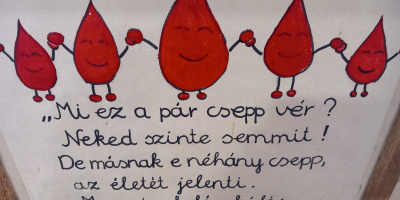 „Mi ez a pár csepp vér ?
Neked szinte semmit !
De másnak e néhány csepp,
az életét jelenti.